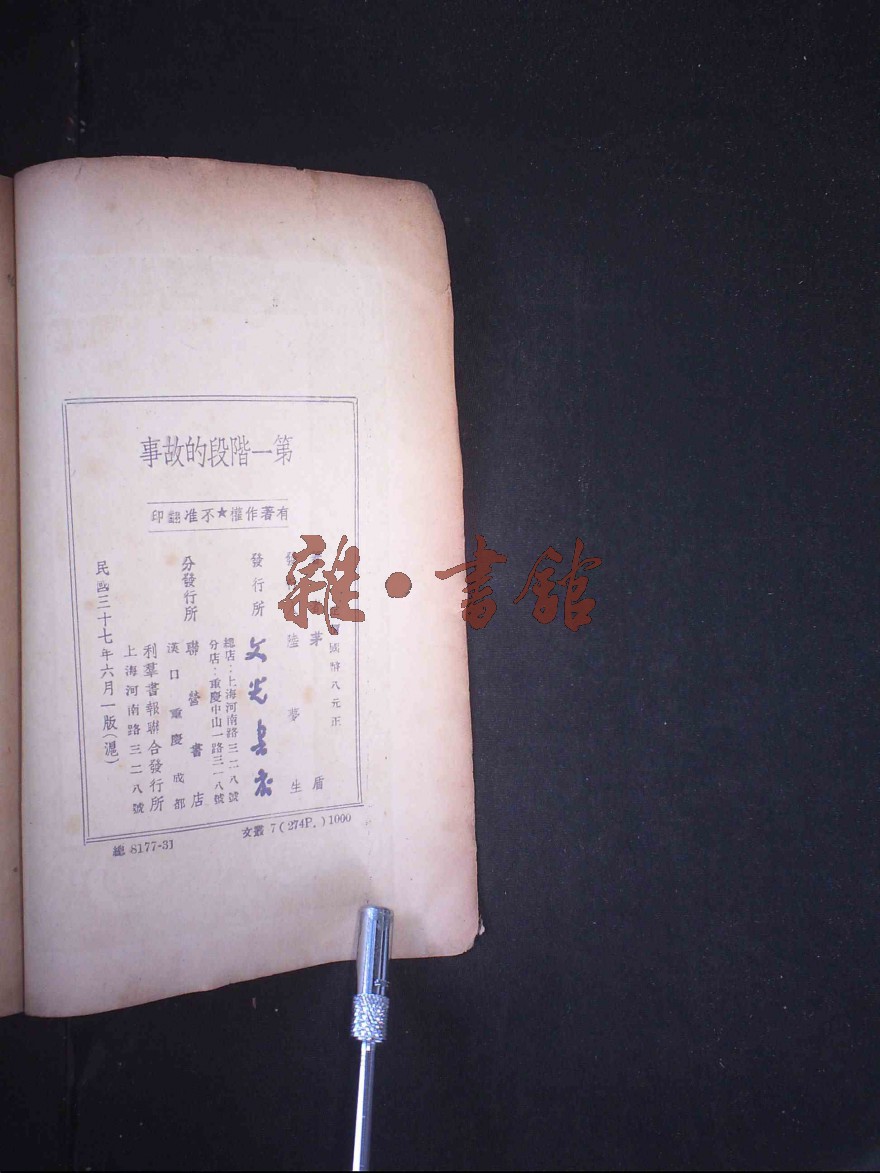 第一階段的故事
有著作權★不准翻印
國幣八元正
茅盾
陸夢生
發行所 文光書店
總店：上海河南路三二八號
分店：重慶中山一路三一八號
分發行所 聯營書店
漢口 重慶 成都
利羣書報聯合發行所
上海河南路三二八號
民國三十七年六月一版(滬)
文叢 7 (274P.) 1000
總 8177-31
雜·書館